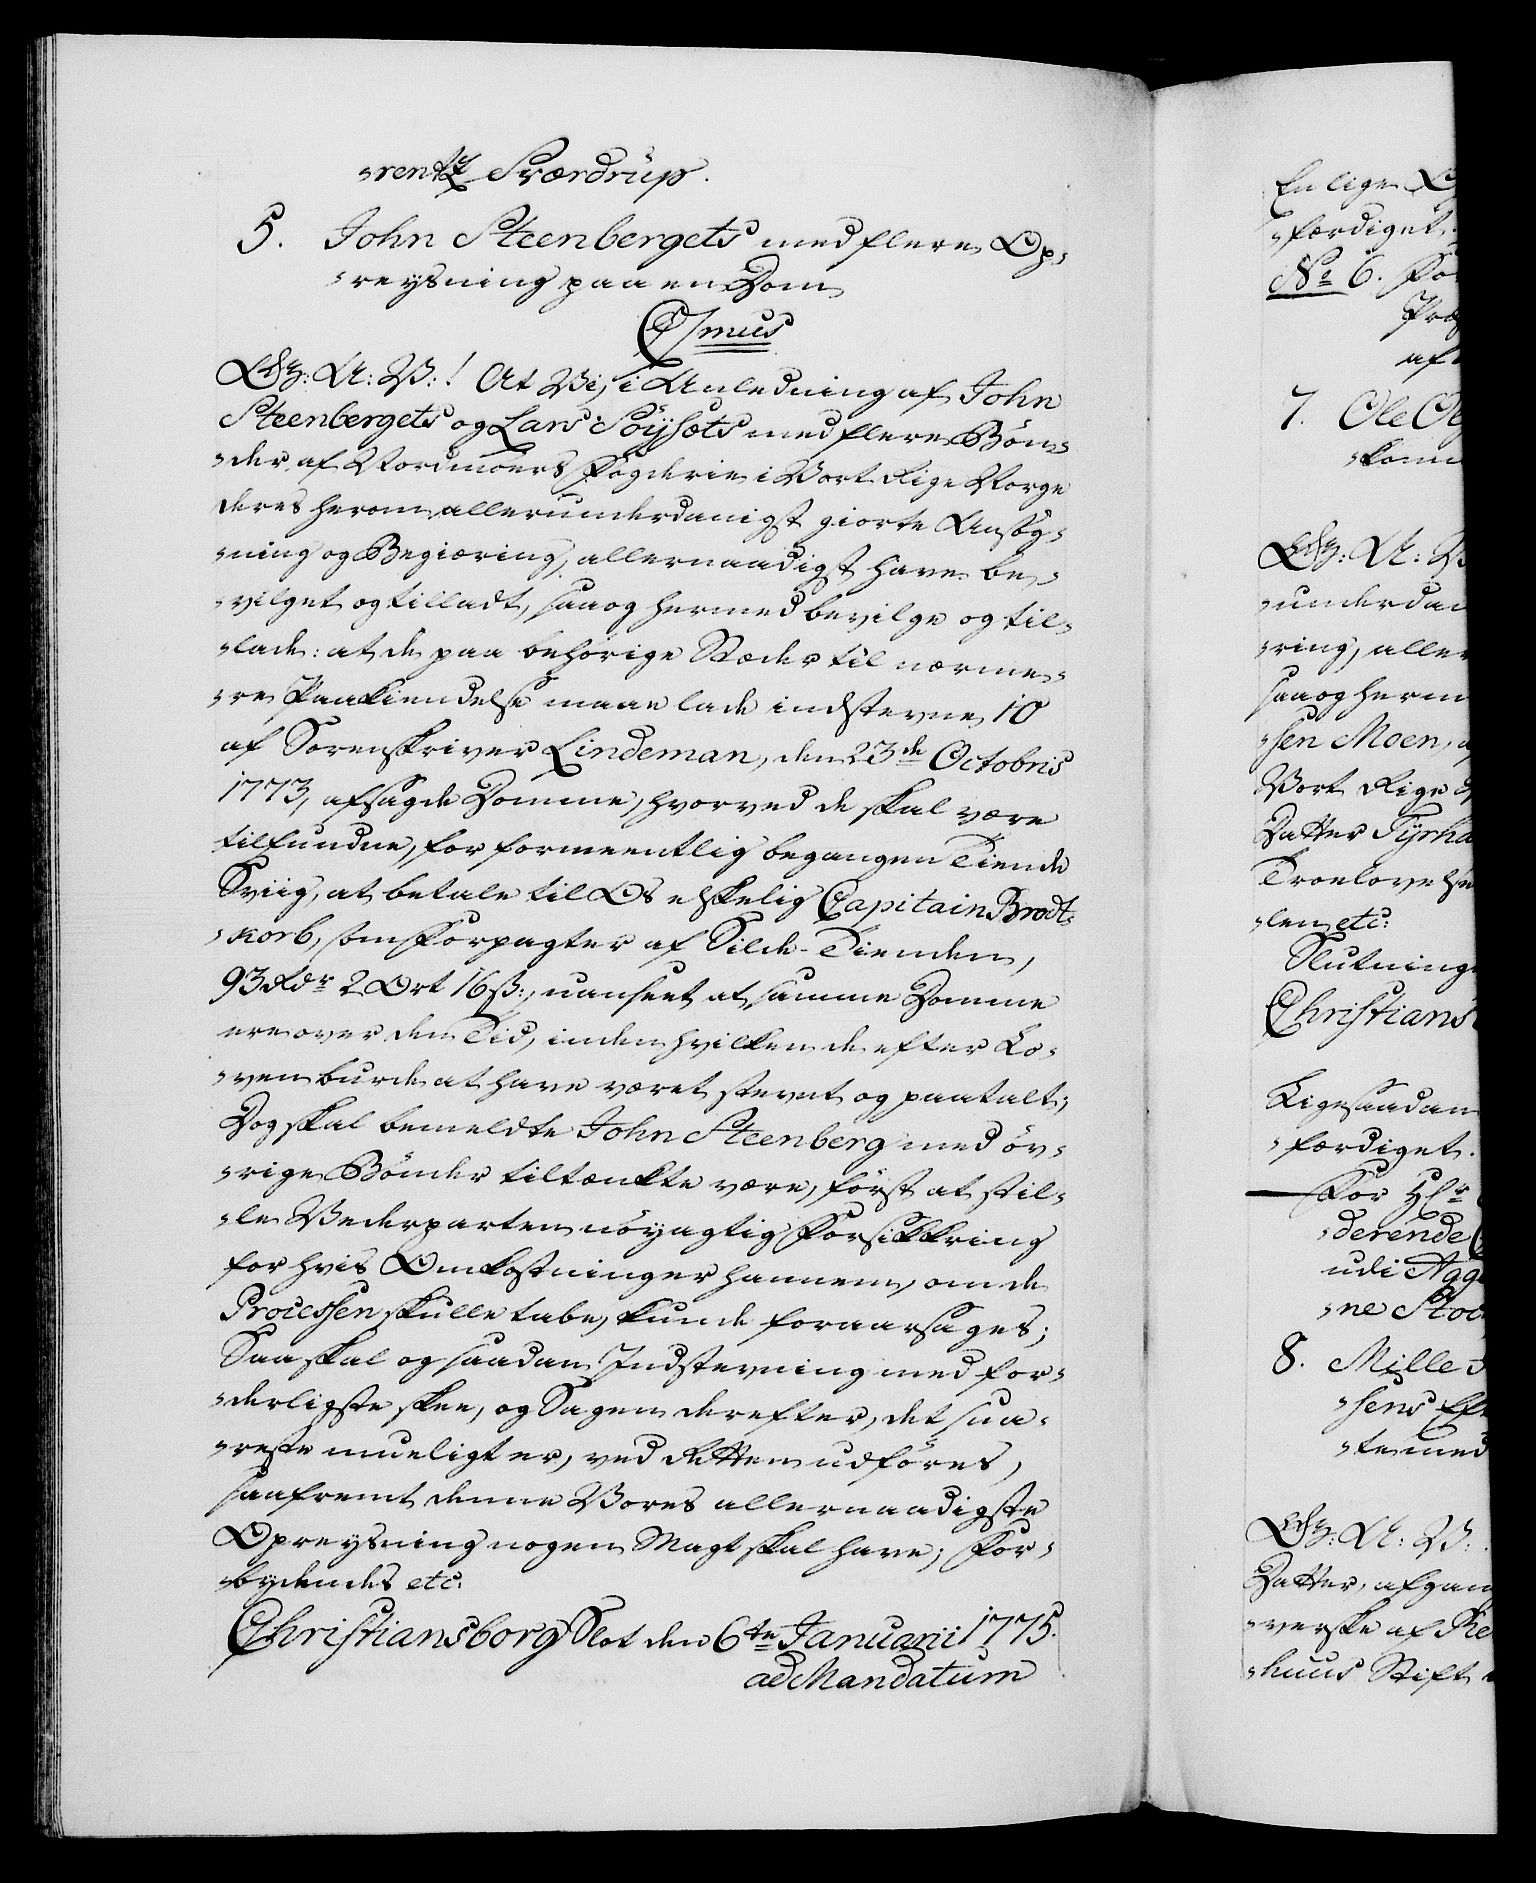 -rentz Sværdrup.
5. John Steenbergets med flere Op-
-reysning paa en Dom
C7mus
G: A: V:! At Vi, i Anledning af John
Steenbergets og Lars Söysets med flere Bön-
-der af Nordmöers Fogderie i Vort Rige Norge
deres herom allerunderdanigst giorte Ansög-
-ning og Begiæring, allernaadigst have be-
-vilget og tilladt, saa og hermed bevilge og til-
-lade: at de paa behörige Stæder til nærme-
-re Paakiendelse maae lade indstevne 10
af Sorenskriver Lindeman, den 23de Octobris
1773, afsagde Domme, hvorved de skal være
tilfundne, for formeentlig begangen Tiende
Sviig, at betale til Os elskelig Capitain Brodt-
-korb, som Forpagter af Silde-Tienden,
93 Rdr 2 Ort 16 ß:, uanseet at samme Domme
ere over den Tid, inden hvilken de efter Lo-
-ven burde at have været stevnt og paatalt;
Dog skal bemeldte John Steenberg med öv-
-rige Bönder tiltænkte være, först at stil-
-le Vederparten nöyagtig Forsikkring
for hvis Omkostninger hannem, om de
Processen skulle tabe, kunde foraarsages;
Saa skal og saadan Indstevning med for-
-derligste skee, og Sagen derefter, det sna-
-reste mueligt er, ved Retten udföres,
saafremt denne Vores allernaadigste
Opreysning nogen Magt skal have; For-
-bydendes etc:
Christiansborg Slot den 6te Januarii 1775.
ad Mandatum
En lige
-færdiget.
No 6. For
af
7. Ole
G: A: V
-underdan
-ring, aller
saa og herm
-sen Moen,
Vort Rige
Datter
Troelovelse
-len etc:
Slutning
Christians
Ligesaadan
-færdiget.
For Hr
-derende
udi Agg
-ne
8. Mille
-sens
-te med
G: A: V:
Datter, afgan
-verske af
-huus Stift